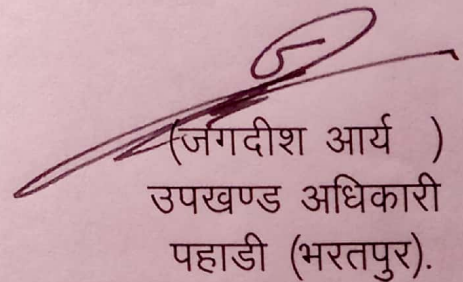 (जगदीश आर्य )
उपखण्ड अधिकारी
पहाडी (भरतपुर).